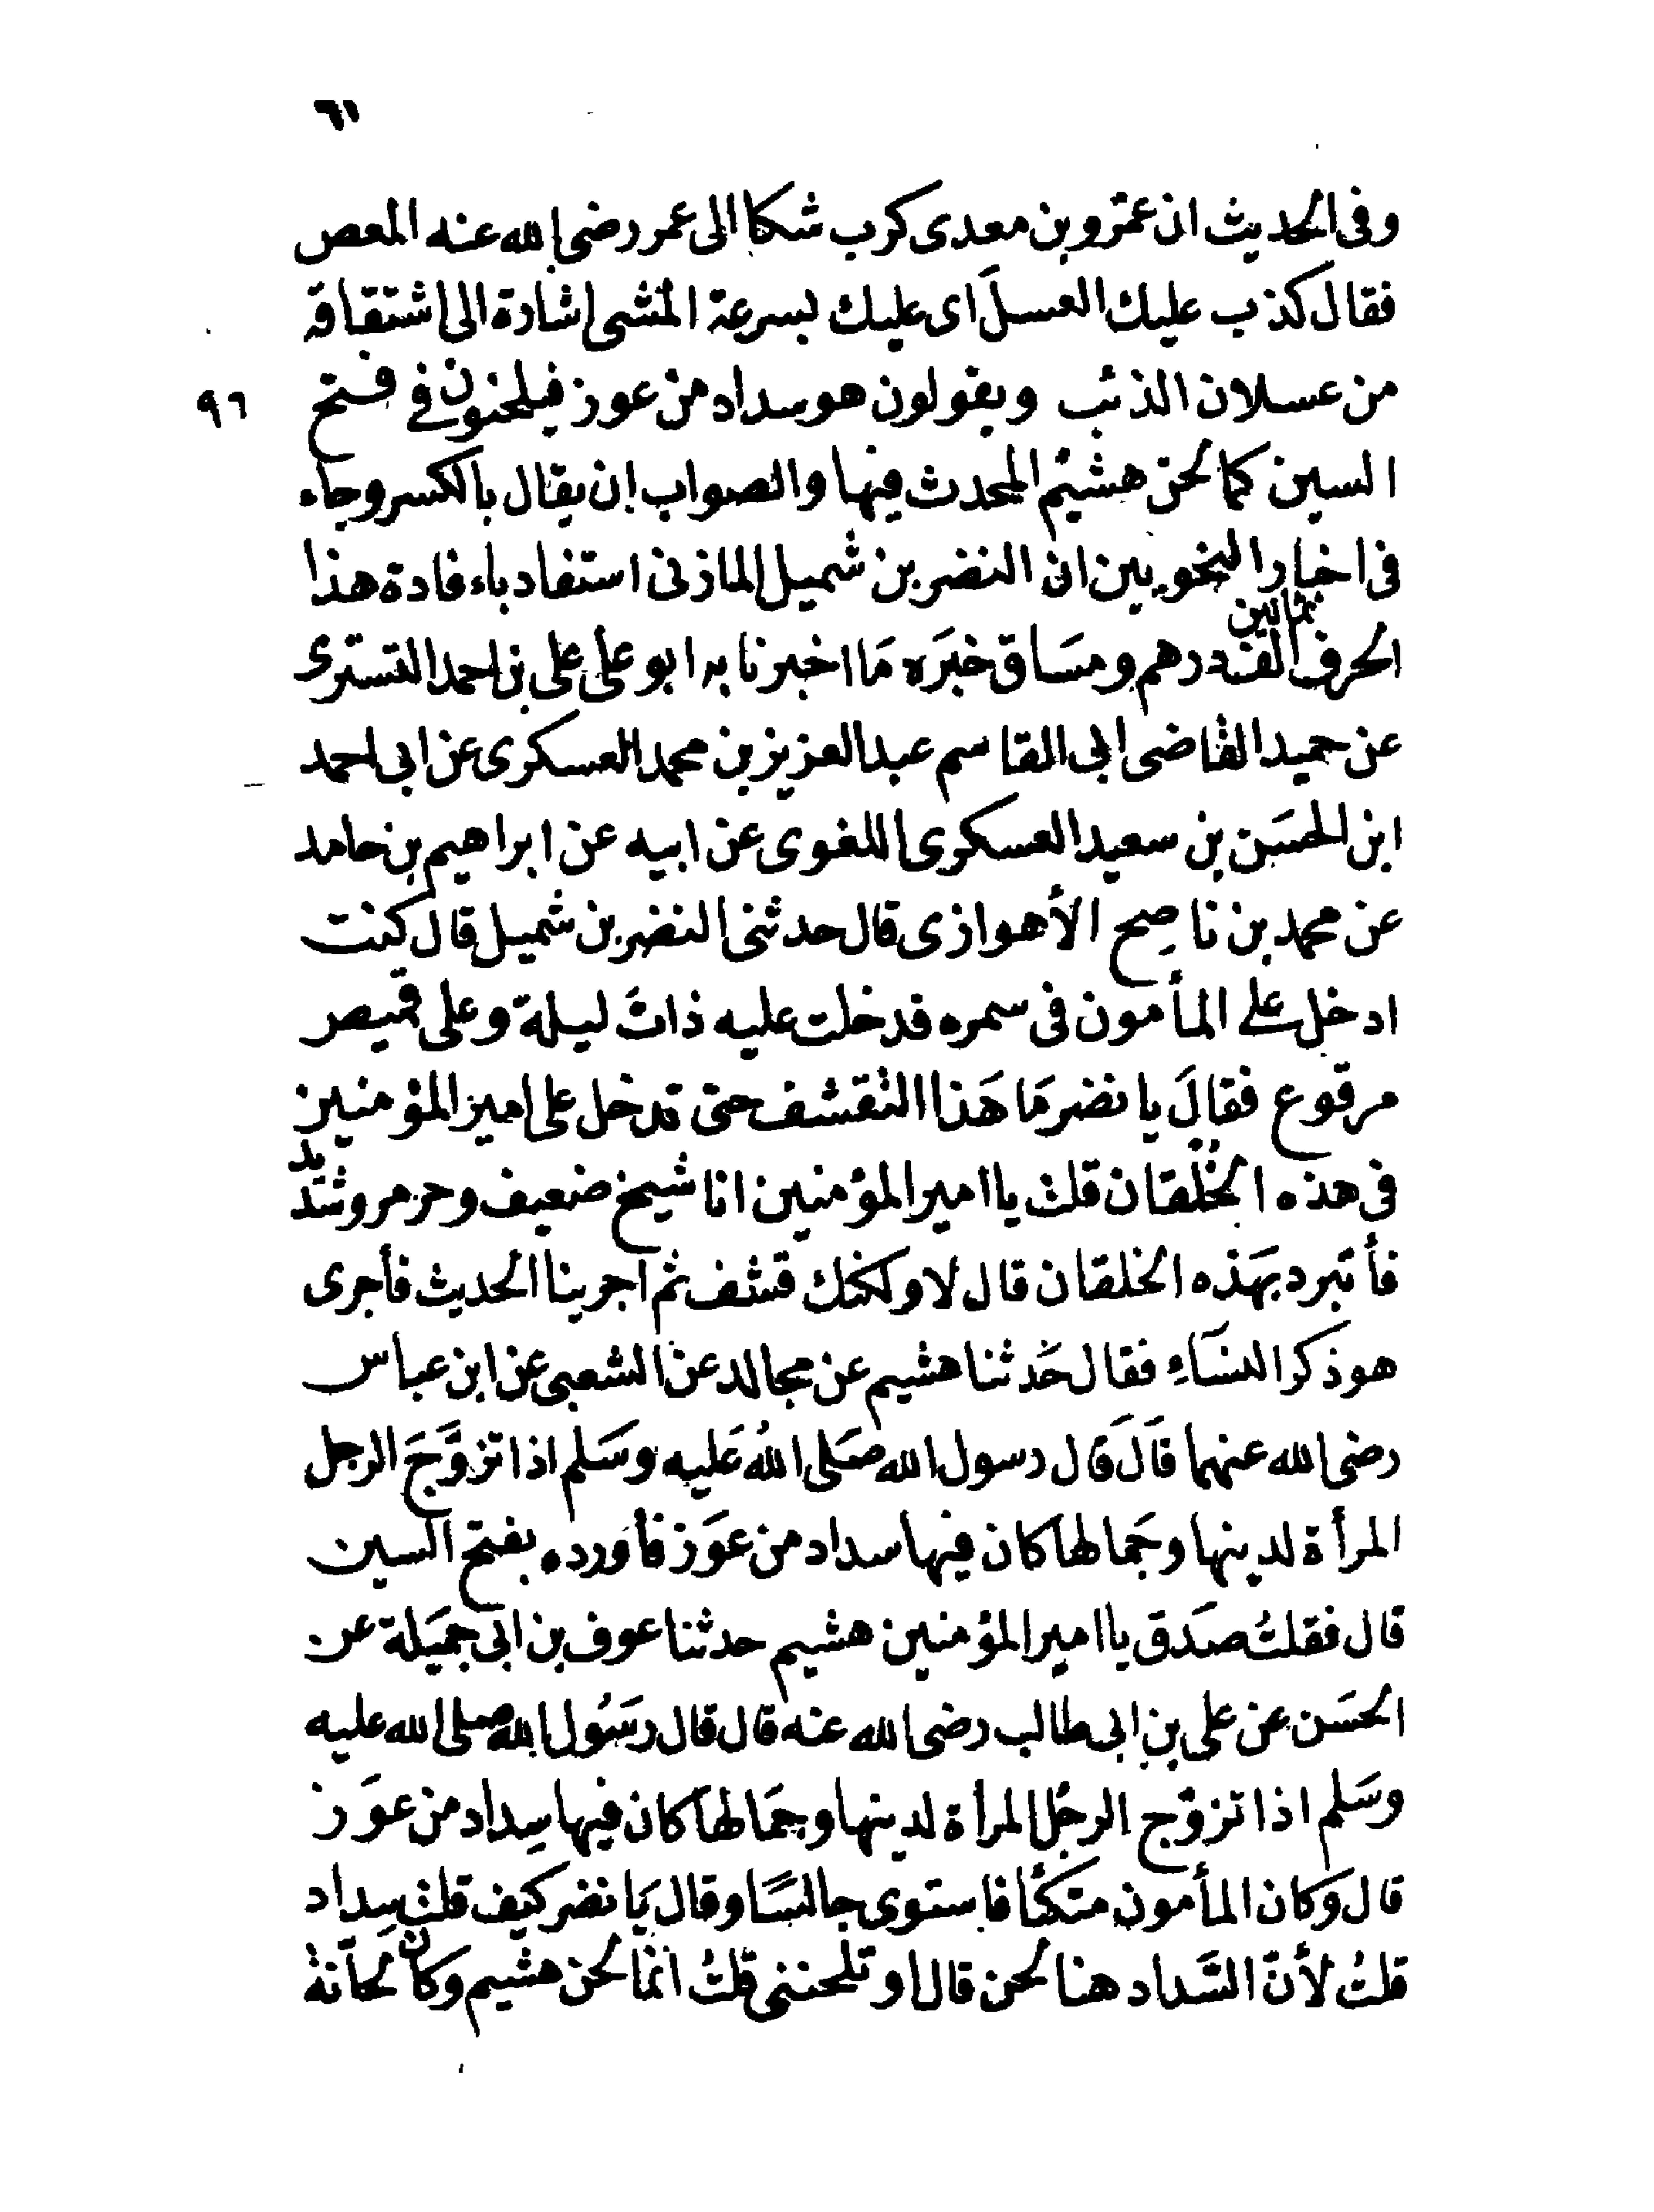 ٦١
وفى الحديث ان عمرو بن معدى كرب شكا الى عمر رضى الله عنه المعص
فقال كذب عليك العسلَ اى عليك بسرعة المشى اشادة الى اشتقاقه
من عسلان الذئب ويقولون هو سداد من عوز فيلحنون فى فتح
٩٦
السين كما لحن هشيم المحدث فيها والصواب ان يقال بالكسر وجاء
فى اخبار النحويين ان النضر بن شميل المازنى استفاد باءفادة هذا
ثمانين
الحرف الف درهم ومسَاق خبَره مَا اخبرنا به ابو على على بن احمد التسترى
عن حميد القاضى ابى القاسم عبد العزيز بن محمد العسكرى عن ابى احمد
ابن الحسَن بن سعيد العسكرى اللغوى عن ابيه عن ابراهيم بن حامد
عن محمد بن ناصِح الأهوازى قال حدثنى النضر بن شميل قال كنت
ادخل على المأمون فى سمره فدخلت عليه ذاتَ ليلة وعلى قميص
مرقوع فقالَ يا نضر مَا هَذا التقشف حتى تدخل على امير المؤمنين
فى هذه الخُلْقان قلت يا امير المؤمنين انا شيخ ضعيف وحر مرو شديد
فأتبرد بهَذه الخلقان قال لا ولكنك قشف ثم اجرينا الحديث فأجرى
هو ذكر النسَاءِ فقال حَدثنا هشيم عن مجالد عن الشعبى عن ابن عباس
رضى الله عنهما قَالَ قَال رسول الله صَلى اللهُ عَليه وسَلم اذا تزوَّجَ الرجل
المرأة لدينها وجَمالها كان فيها سداد من عَوَز فأورده بفتح السين
قال فقلتُ صَدَق يا امير المؤمنين هشيم حدثنا عوف بن ابى جميَلة عن
الحسَن عن على بن ابى طالب رضى الله عنه قال قال رسَول الله صلى الله عليه
وسَلم اذا تزوّج الرجُل المرأة لدينها وجمَالها كان فيها سِداد من عوَز
قال وَكان المأمون متكئًا فاستوى جالسًا وقال يَا نضر كيف قلت سِداد
قلتُ لأنّ السَّداد هنا لحن قال او تلحننى قلتُ انّما لحن هشيم وكان لحّانةً